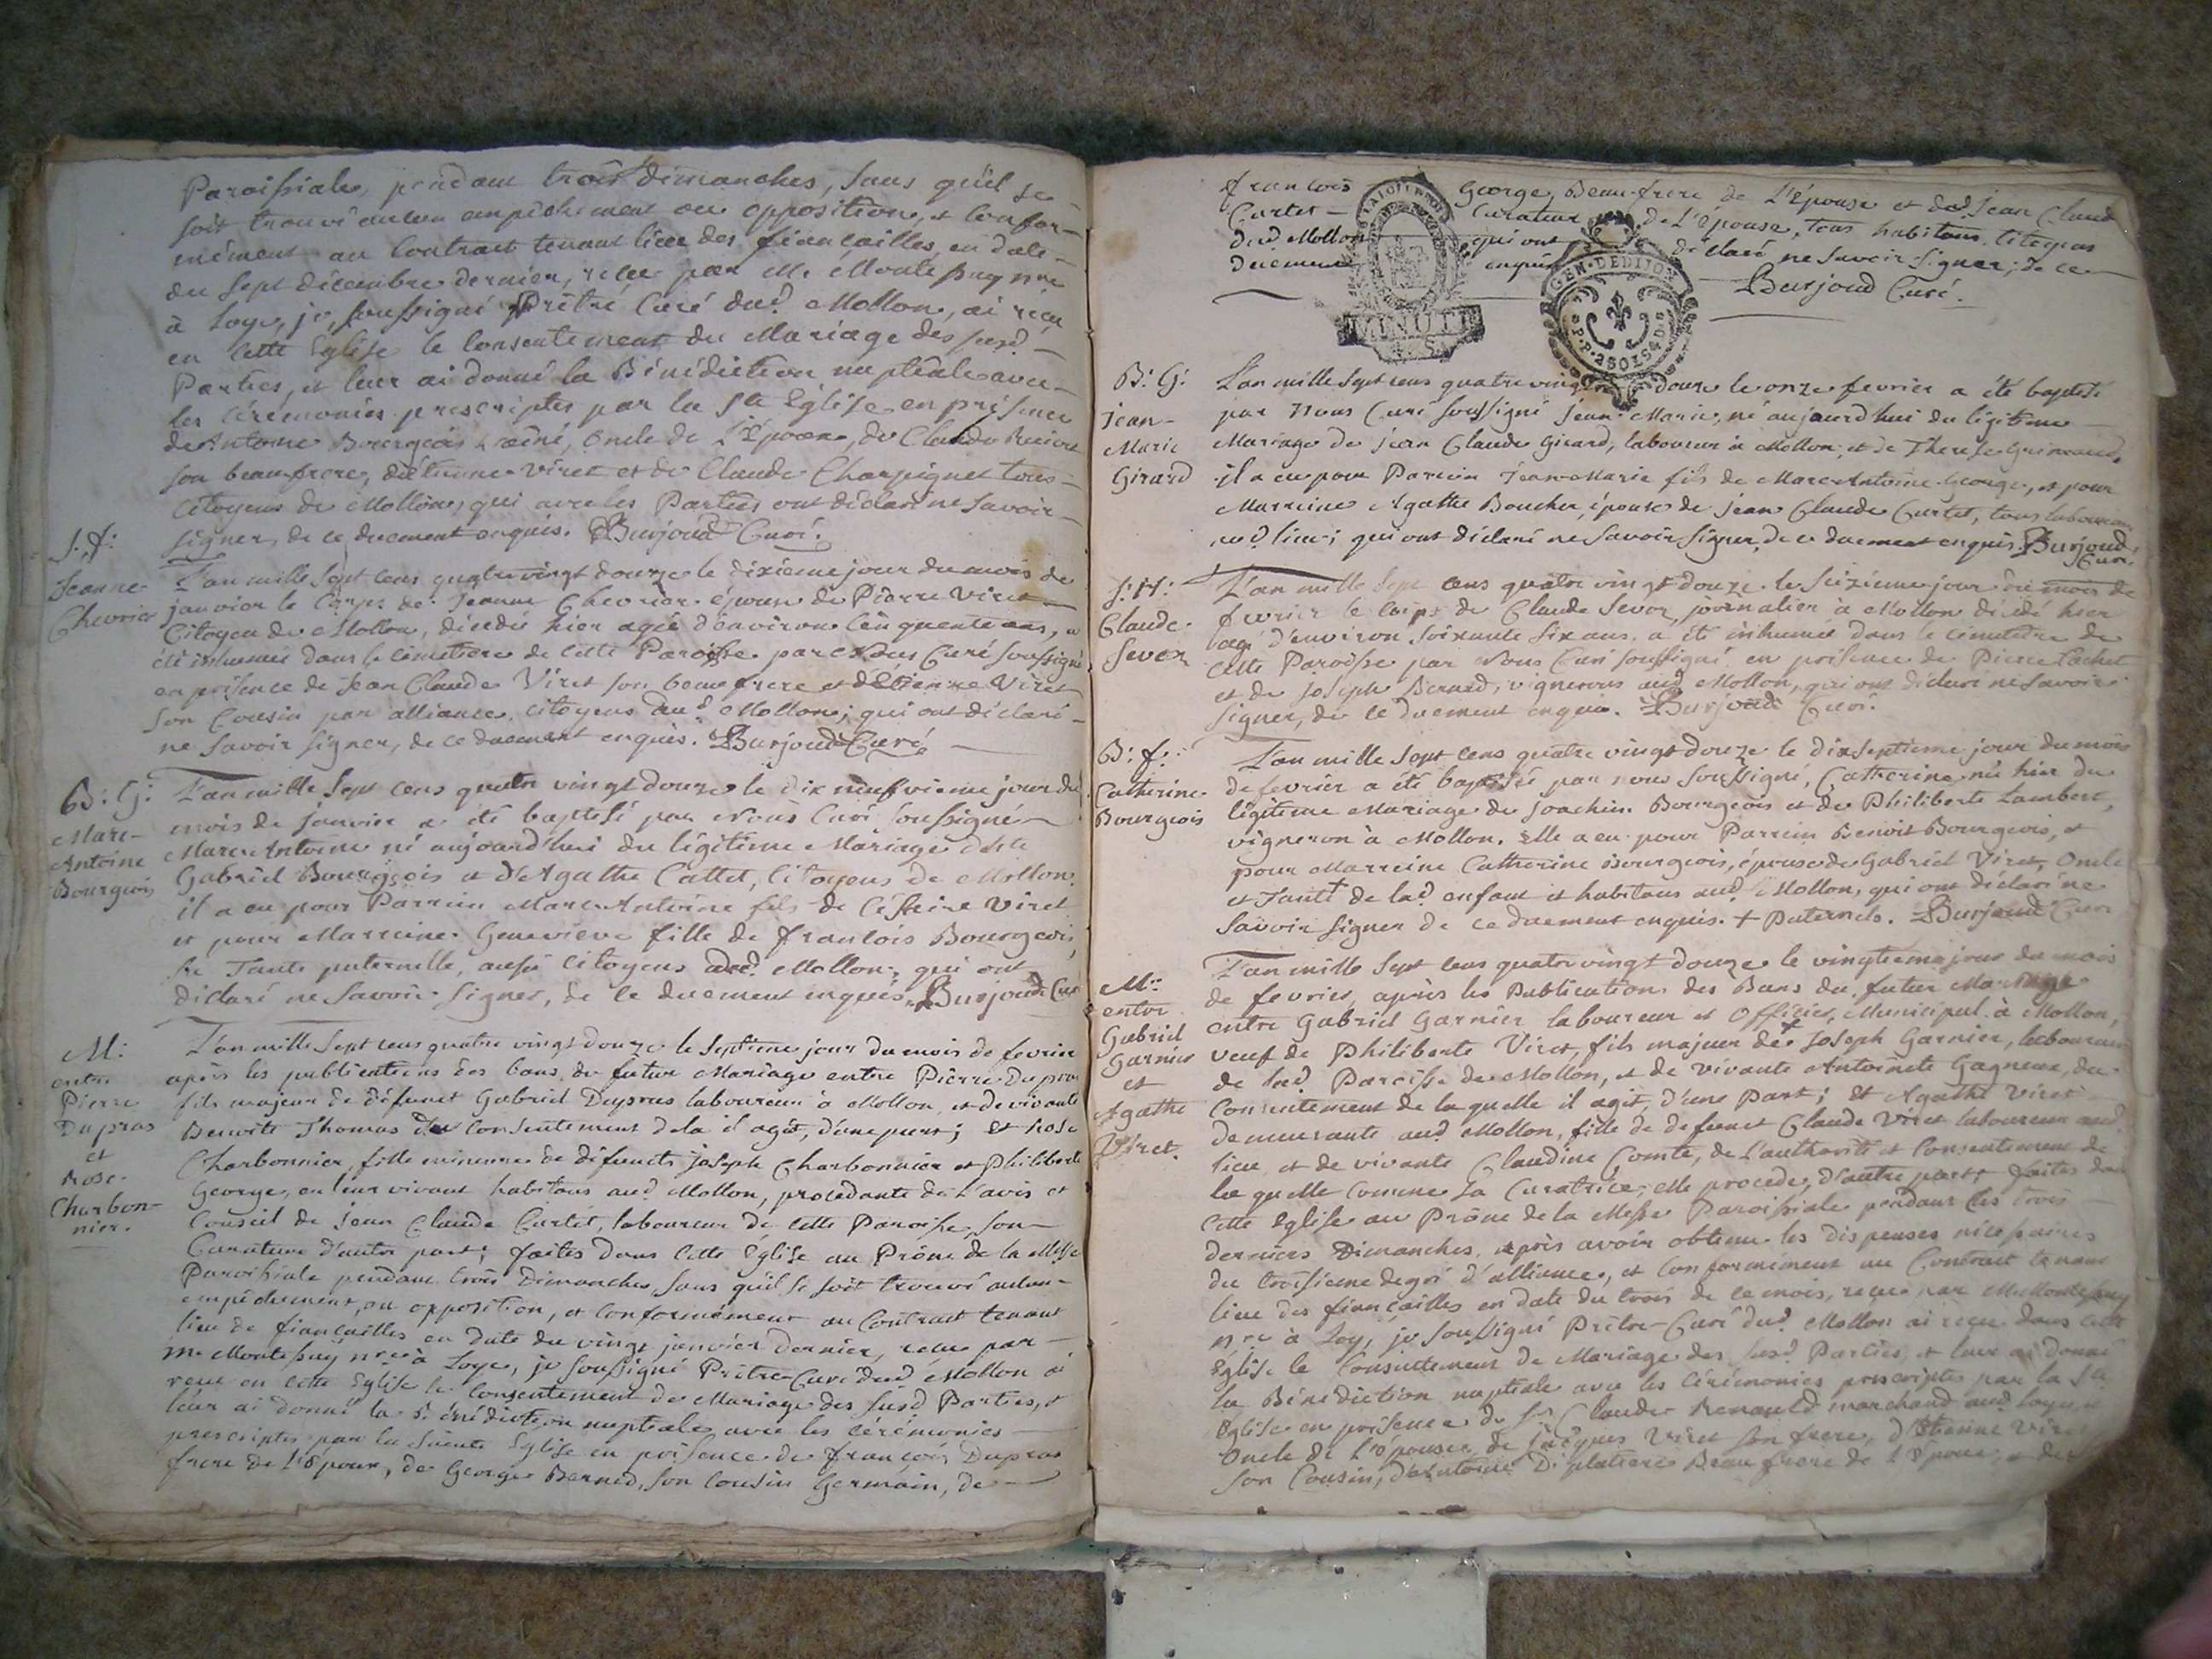 Paroissiale, pendant trois dimanches, sans qu'il se
soit trouvé aucun empêchement ou opposition, et confor-
mément au Contract tenant lieu des fiançailles, en date
du sept décembre dernier, reçu par Me Montessuy nre
à Loye, je, soussigné Prêtre Curé dud. Mollon, ai reçu
en cette Eglise le Consentement du Mariage des susd.
Parties, et leur ai donné la Bénédiction nuptiale avec
les Cérémonies prescriptes par la Ste Eglise en présence
de Antoine Bourgeois L'aîné, Oncle de L'Epoux, de Claude
son beaufrere, d'étienne Viret et de Claude Charpignet tous
Citoyens de Mollon, qui avec les Parties ont déclaré ne Savoir
signer, de ce duement enquis. Burjoud Curé.
J. f:
Jeanne
Chevrier
L'an mille Sept Cens quatre vingt douze le dixieme jour du mois de
janvier le Corps de Jeanne Chevrier épouse de Pierre Viret
Citoyen de Mollon, décédée hier agée d'environ Cinquante ans, a
été inhumée dans le Cimetiere de cette Paroisse par Nous Curé soussigné
en présence de Jean Claude Viret son beau frere et d'Etienne Viret
son Cousin par alliance, Citoyens dud. Mollon; qui ont déclaré
ne savoir signer, de ce duement enquis. Burjoud Curé.
B: G:
Marc-
Antoine
Bourgeois
L'an mille Sept Cens quatre vingt douze le dix neufvieme jour du
mois de janvier a été baptisé par Nous Curé soussigné
Marc Antoine né aujourd'hui du légitime Mariage de
Gabriel Bourgeois et d'Agathe Cattet, Citoyens de Mollon.
il a eu pour Parrein Marc Antoine fils de Viret
et pour Marreine Genevieve fille de francois Bourgeois,
sa Tante paternelle, aussi Citoyens aud. Mollon, qui ont
déclaré ne Savoir Signer, de ce duement enquis. Burjoud Curé
M:
entre
Pierre
Dupras
et
Rose
Charbon-
nier.
L'an mille Sept cens quatre vingt douze le septieme jour du mois de fevrier
après les publications des bans du futur Mariage entre Pierre Dupras
fils majeur de défunct Gabriel Dupras laboureur à Mollon, et de vivante
Benoite Thomas du Consentement de la il agit, d'une part; Et Rose
Charbonnier, fille mineure de défuncts joseph Charbonnier et Philiberte
George, en leur vivant habitans aud. Mollon, procedante de L'avis et
Conseil de jean Claude Curtet, laboureur de cette Paroisse, son
Curateur d'autre part; faites dans Cette Eglise au Prône de la Messe
Paroissiale pendant trois Dimanches sans qu'il se soit trouvé aucun
empêchement, ou opposition, et Conformément au Contract tenant
lieu de fiançailles en date du vingt janvier dernier, reçu par
Me Montessuy nre à Loye, je soussigné Prêtre-Curé dud. Mollon ai
reçu en cette Eglise le Consentement de Mariage des susd. Parties, et
leur ai donné la Bénédiction nuptiale avec les Cérémonies
prescriptes par la Sainte Eglise en présence de françois Dupras
frere de L'Epoux, de George Bernard, son Cousin Germain, de
françois George, Beau-frere de L'Epouse et dud. Jean Claud
Curtet Curateur de L'épouse, tous habitans Citoyens
dud. Mollon qui ont déclaré ne Savoir Signer; de ce
duement enquis Burjoud Curé.
MINUTE
GEN. DE DIJON
B: G:
Jean-
Marie
Girard
L'an mille Sept cens quatre vingt douze le onze fevrier a été baptisé
par Nous Curé soussigné Jean-Marie, né aujourd'hui du légitime
Mariage de jean Claude Girard, laboureur à Mollon, et de Therese
il a eu pour Parrein Jean-Marie fils de Marc-Antoine George, et pour
Marreine Agathe Boucher, épouse de jean Claude Curtet, tous laboureurs
aud. lieu; qui ont déclaré ne savoir signer, de ce duement enquis. Burjoud,
Curé.
Claude
Sevoz
L'an mille Sept Cens quatre vingt douze le seizieme jour du mois de
fevrier le Corps de Claude Sevoz, journalier à Mollon décédé hier
agé d'environ soixante six ans, a été inhumé dans le Cimetiere de
cette Paroisse par Nous Curé soussigné en présence de Pierre
et de joseph Bernard, vignerons aud. Mollon, qui ont déclaré ne savoir
signer, de ce duement enquis. Burjoud Curé.
B: f:
Catherine
Bourgeois
L'an mille Sept Cens quatre vingt douze le dix septieme jour du mois
de fevrier a été baptisée par nous Soussigné, Catherine née hier du
légitime Mariage de Joachim Bourgeois et de Philiberte Lambert,
vigneron à Mollon. Elle a eu pour Parrein Benoit Bourgeois, et
pour Marreine Catherine Bourgeois, épouse de Gabriel Viret, Oncle
et Tante + de lad. enfant et habitans aud. Mollon, qui ont déclaré ne
savoir signer de ce duement enquis. + Paternels. Burjoud Curé
M:
entre
Gabriel
Garnier
et
Agathe
Viret.
L'an mille Sept cens quatre vingt douze le vingtieme jour du mois
de fevrier, après les Publications des Bans du futur Mariage
entre Gabriel Garnier laboureur et Officier Municipal à Mollon,
veuf de Philiberte Viret, fils majeur de + Joseph Garnier, laboureur
de lad. Paroisse de Mollon, et de vivante Antoinete Gagneux, du
Consentement de laquelle il agit, d'une Part; Et Agathe Viret
demeurante aud. Mollon, fille de defunct Claude Viret laboureur aud.
lieu et de vivante Claudine Comte, de L'authorité et Consentement de
laquelle Comme sa Curatrice, elle procede, d'autre part; faites dans
Cette Eglise au Prône de la Messe Paroissiale pendant les trois
derniers Dimanches, après avoir obtenu les dispenses nécessaires
du troisieme degré d'alliance, et Conformément au Contract tenant
lieu des fiançailles en date du trois de ce mois, reçu par Me Montessuy
nre à Loy, je soussigné Prêtre-Curé dud. Mollon ai reçu dans cette
Eglise le Consentement de Mariage des susd. Parties, et leur ai donné
la Bénédiction nuptiale avec les Cérémonies prescriptes par la Ste
Eglise en présence de Sr Claude Renauld marchand aud. Loye,
Oncle de L'épouse, de jacques Viret son frere, d'Etienne Viret
son Cousin, d'Antoine Beau frere de L'Epoux, et de